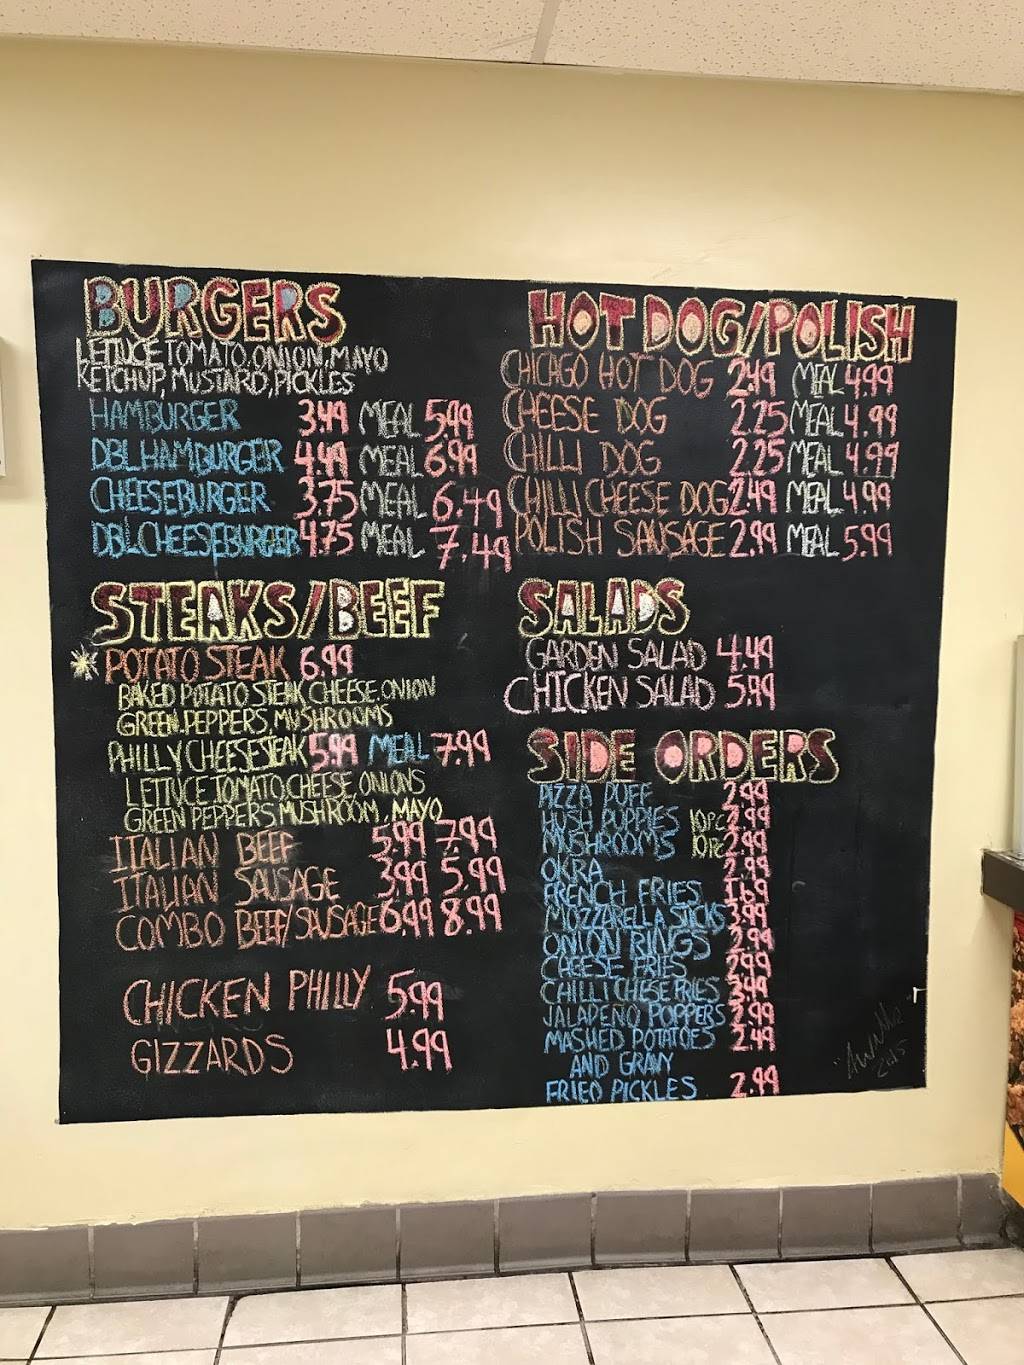 BURGERS
LETTUCE TOMATO, ONION, MAYO
KETCHUP, MUSTARD, PICKLES
HAMBURGER 3.49 MEAL 5.99
DBL HAMBURGER 4.49 MEAL 6.99
CHEESEBURGER 3.75 MEAL 6.49
DBL CHEESEBURGER 4.75 MEAL 7.49
STEAKS/BEEF
POTATO STEAK 6.99
BAKED POTATO STEAK CHEESE, ONION
GREEN PEPPERS MUSHROOMS
PHILLY CHEESESTEAK 5.99 MEAL 7.99
LETTUCE, TOMATO, CHEESE, ONIONS
GREEN PEPPERS, MUSHROOM, MAYO
ITALIAN BEEF 5.99 7.99
ITALIAN SAUSAGE 3.99 5.99
COMBO BEEF/SAUSAGE 6.99 8.99
CHICKEN PHILLY 5.99
GIZZARDS 4.99
HOT DOG/POLISH
CHICAGO HOT DOG 2.49 MEAL 4.99
CHEESE DOG 2.25 MEAL 4.99
CHILLI DOG 2.25 MEAL 4.99
CHILLI CHEESE DOG 2.49 MEAL 4.99
POLISH SAUSAGE 2.99 MEAL 5.99
SALADS
GARDEN SALAD 4.49
CHICKEN SALAD 5.99
SIDE ORDERS
PIZZA PUFF 2.99
HUSH PUPPIES 10PC 2.99
MUSHROOMS 10PC 2.99
OKRA 2.99
FRENCH FRIES 1.69
MOZZARELLA STICKS 3.99
ONION RINGS 2.99
CHEESE FRIES 2.99
CHILLI CHESE FRIES 3.49
JALAPENO POPPERS 2.99
MASHED POTATOES 2.49
AND GRAVY
FRIED PICKLES 2.99
2015